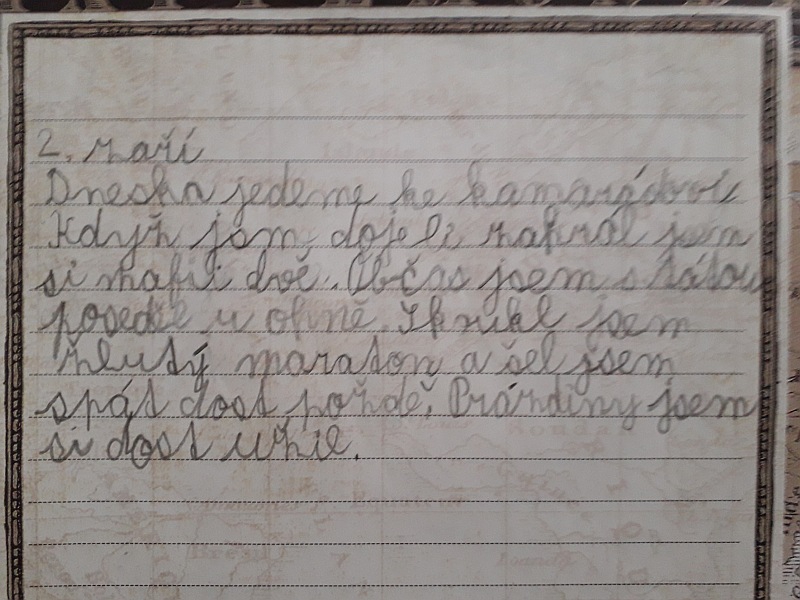 2. září
Dneska jedeme ke kamarádovi
Když jsm dojeli, zahrál jsem
si mafii dvě. Občas jsem s tátou
poseděl u ohně. Skoukl jsem
žlutý maraton a šel jsem
spát dost pozdě. Prázdiny jsem
si dost užil.